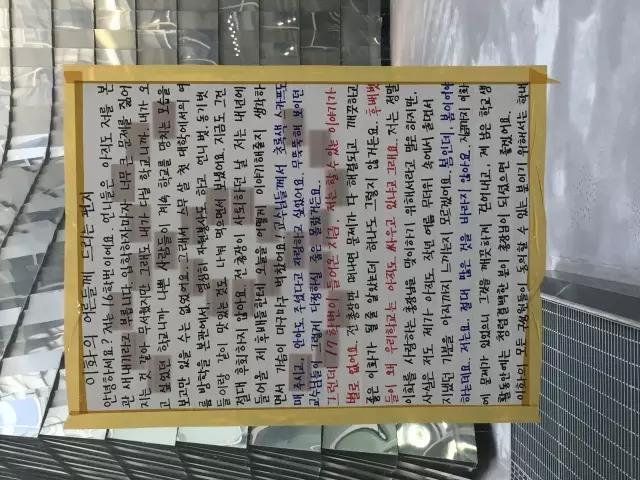 이화의 어른들께 드리는 편지
안녕하세요? 저는 16학번이에요. 언니들은 아직도 저를 본
관 새내기라고 부릅니다. 입학하자마자 너무 큰 문제를 짊어
지는 것 같아 무서웠지만 그래도 내가 다닐 학교니까, 내가 오
고 싶었던 학교니까 나쁜 사람들이 계속 학교를 망치는 모습을
보고만 있을 수는 없었어요. 그래서 스무 살 첫 대학에서의 여
름 방학을 본관에서 열심히 자원봉사도 하고 언니 벗, 동기 벗
들이랑 같이 맛있는 것도 나눠 먹으면서 보냈어요. 지금도 그건
절대 후회하지 않아요. 전 총장이 사퇴하던 날 저는 내년에
들어올 제 후배들한테 오늘을 어떻게 이야기해줄지 생각하
면서 가슴이 마구마구 벅찼어요! 교수님들께서 초록색 스카프도
매 주시고, 안아도 주셨다고 자랑하고 싶었어요. 무뚝뚝해 보이던
교수님들이 그렇게 다정하실 줄은 몰랐거든요.
그런데 17학번이 들어온 지금, 저는 할 수 있는 이야기가
별로 없어요. 전 총장만 떠나면 문제가 다 해결되고 깨끗하고
좋은 이화가 될 줄 알았는데 하나도 그렇지 않거든요. 후배벗
들이 왜 우리학교는 아직도 싸우고 있냐고 그래요. 저는 정말
이화를 사랑하는 총장님을 맞이하기 위해서라고 말은 하지만,
사실은 저도 제가 아직도 작년 여름 무더위 속에서 울면서
지냈던 기분을 아직까지 느끼는지 모르겠어요. 봄인데, 봄이어야
하는데요. 저는요, 절대 많은 것을 바라지 않아요. 지금까지 이화
에 문제가 있었으니 그것을 깨끗하게 걷어내고, 제 남은 학교생
활동안에는 청렴결백한 분이 총장님이 되셨으면 좋겠어요.
이화의 모든 구성원들이 동의할 수 있는 분이기 위해서는 학내